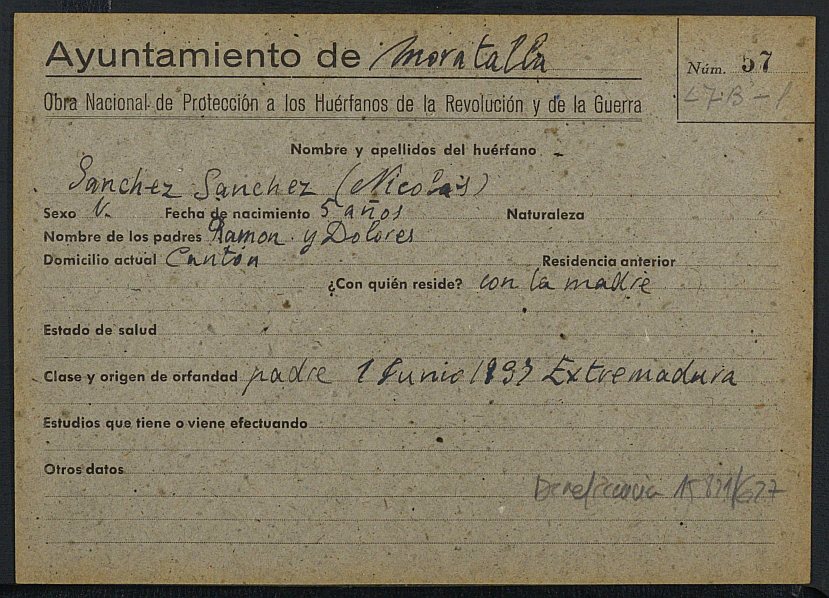 Ayuntamiento de Moratalla
Núm. 57
Obra Nacional de Protección a los Huérfanos de la Revolución y de la Guerra
Nombre y apellidos del huérfano
Sanchez Sanchez (Nicolás)
Sexo V. Fecha de nacimiento 5 años Naturaleza
Nombre de los padres Ramon y Dolores
Domicilio actual Cantón Residencia anterior
¿Con quién reside? con la madre
Estado de salud
Clase y origen de orfandad padre 1 Junio Extremadura
Estudios que tiene o viene efectuando
Otros datos
Beneficencia